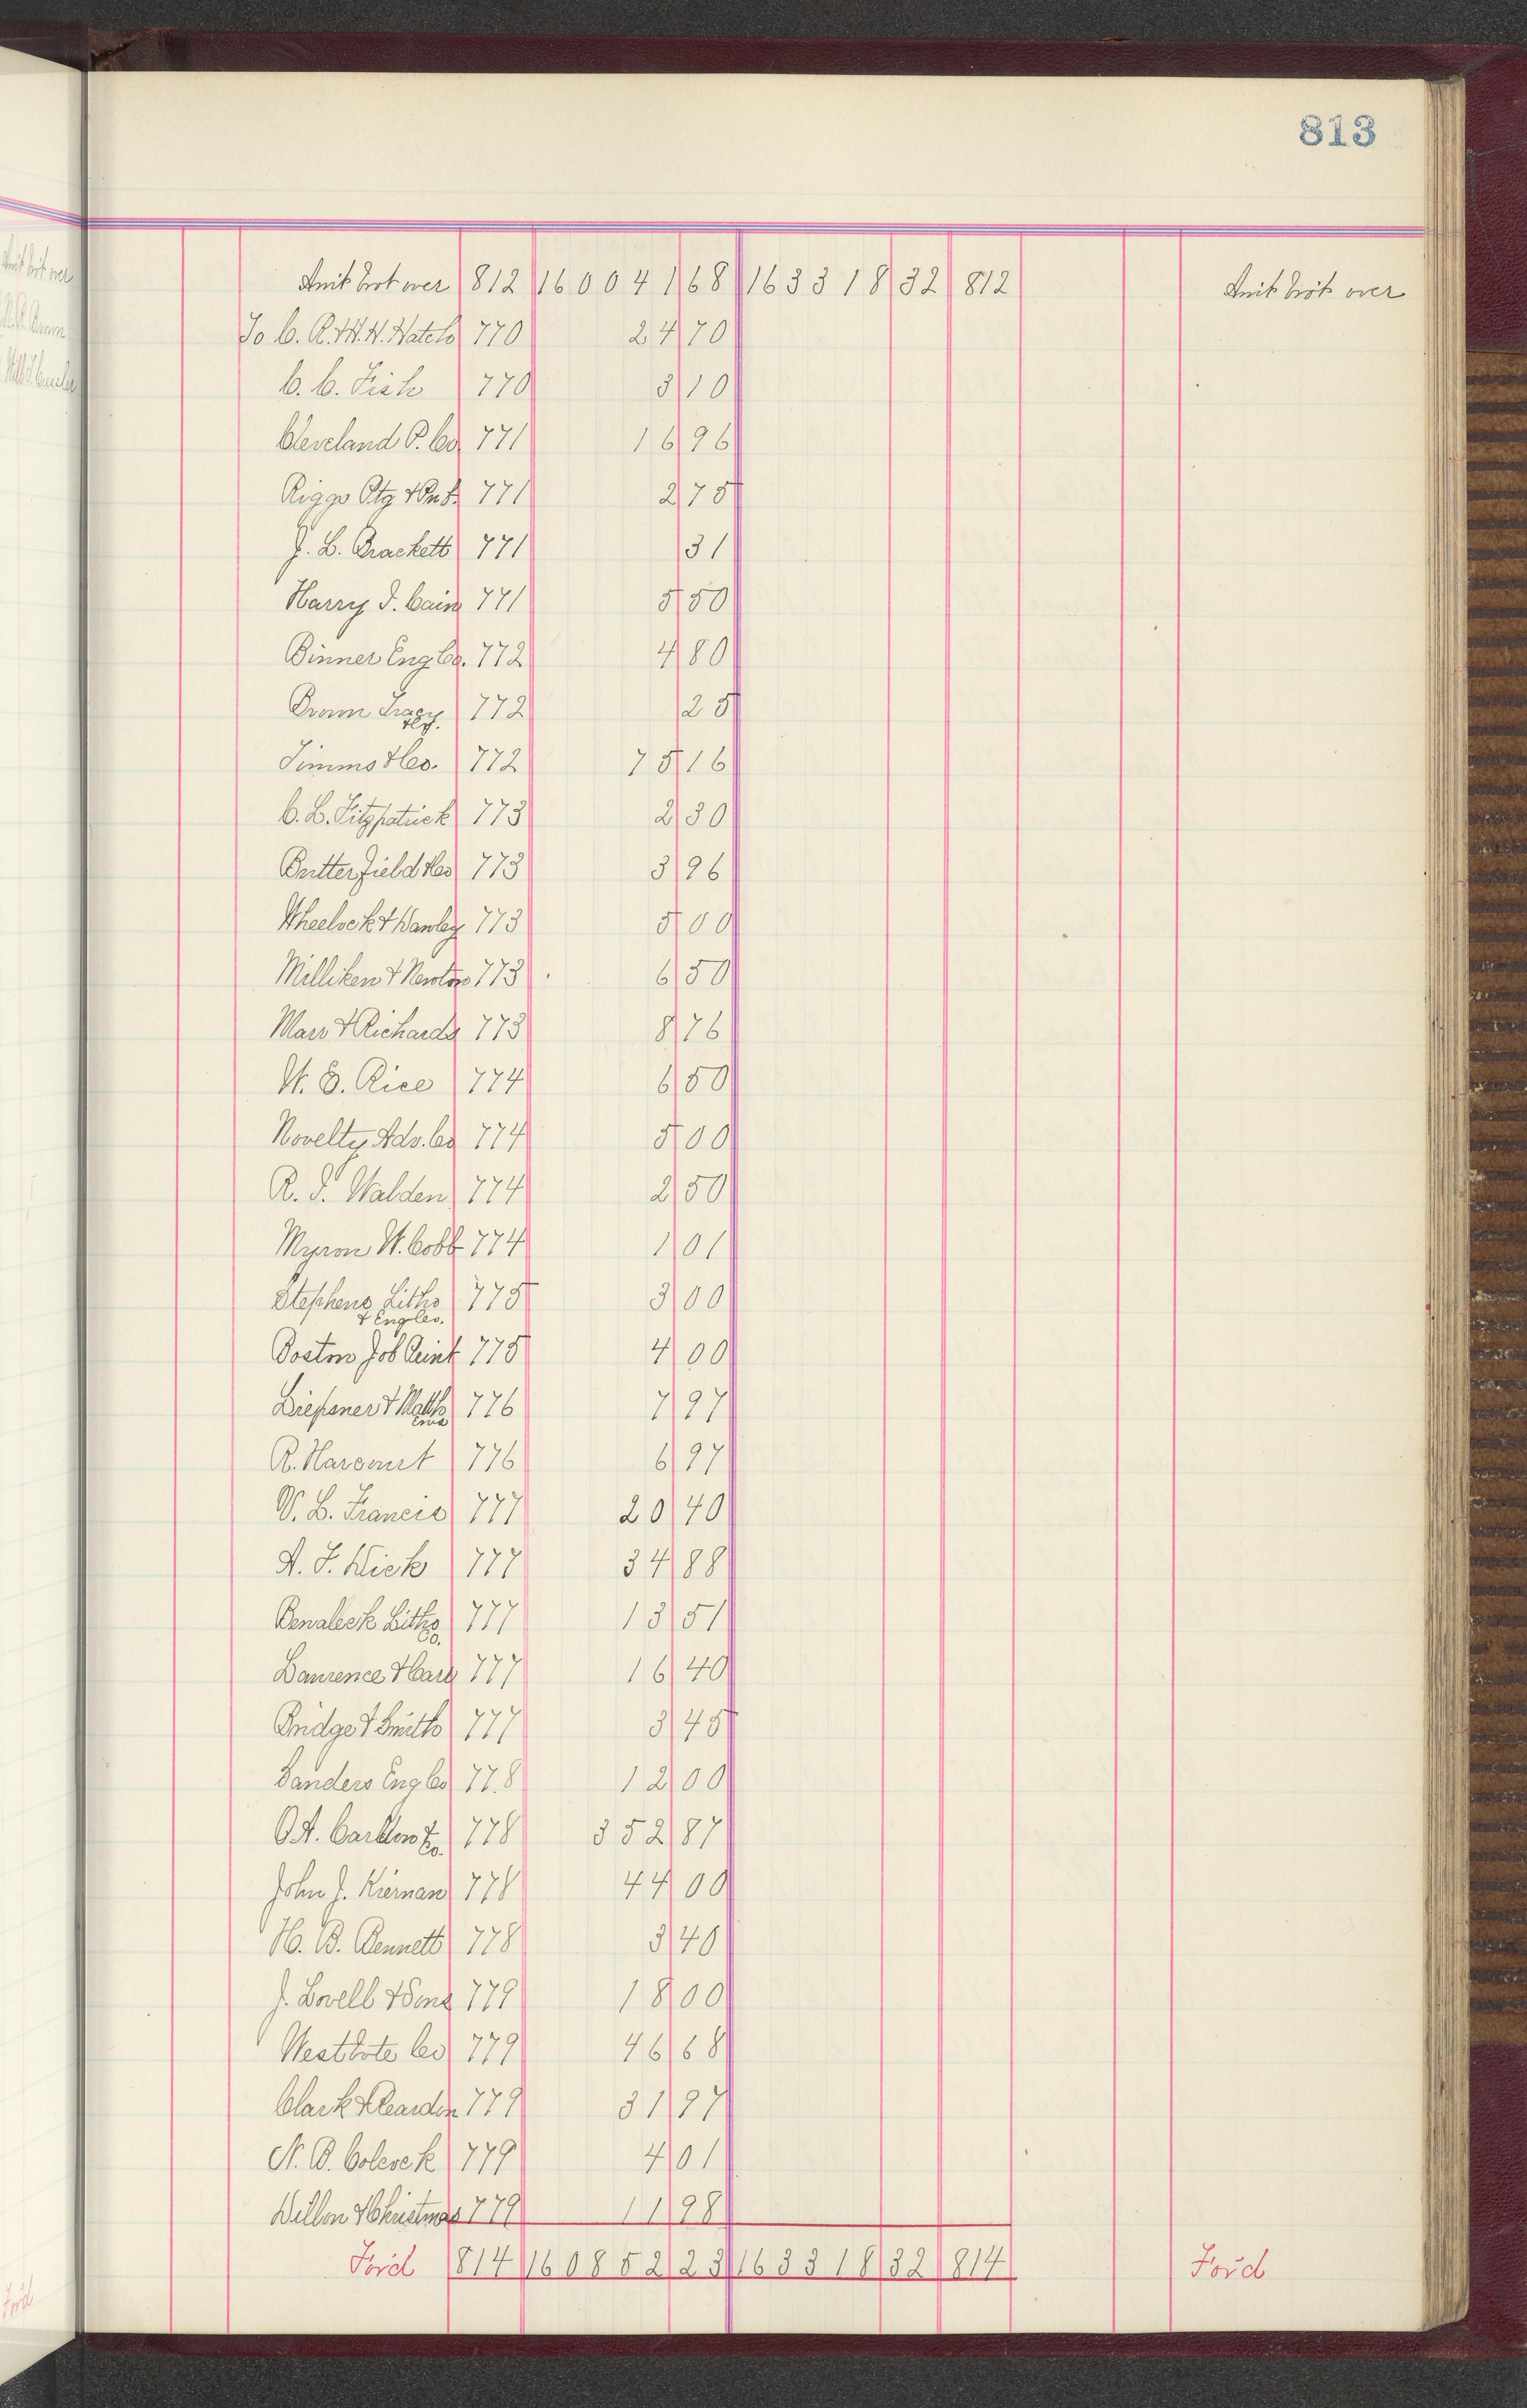 813
Amt brot over 812 160041 68 163318 32 812 Amt brot over
To C. R. & W. N. Hatch 770 24 70
C. C. Fish 770 3 10
Cleveland P. Co 771 16 96
Riggs Ptg & Pub. 771 2 75
J. L. Brackett 771 31
Harry I. Cain 771 5 50
Binner Eng Co. 772 4 80
Tracy 772 25
Simms & Co. 772 75 16
C. L. Fitzpatrick 773 2 30
Butterfield & Co 773 3 96
Wheelock & Hawley 773 5 00
Milliken & Newton 773 6 50
Mass & Richards 773 8 76
W. E. Rice 774 6 50
Novelty Adv. Co 774 5 00
R. I. Walden 774 2 50
Myron W. Cobb 774 1 01
Stephens Litho 775 3 00
& Eng Co.
Boston Job Print 775 4 00
776 7 97
R. Harcourt 776 6 97
V. L. Francis 777 20 40
A. F. Hick 777 34 88
Litho Co. 777 13 51
Laurence & Carr 777 16 40
Bridge & Smith 777 3 45
Sanders Eng Co 778 12 00
O. A. Carlton & Co. 778 352 87
John J. Kiernan 778 44 00
H. B. Bennett 778 3 40
J. Lovell & Sons 779 18 00
Westbote Co 779 46 68
Clark & Reardon 779 31 97
N. B. Colcock 779 4 01
Dillon & Christmas 779 11 98
Ford 814 160852 23 163318 32 814 Ford